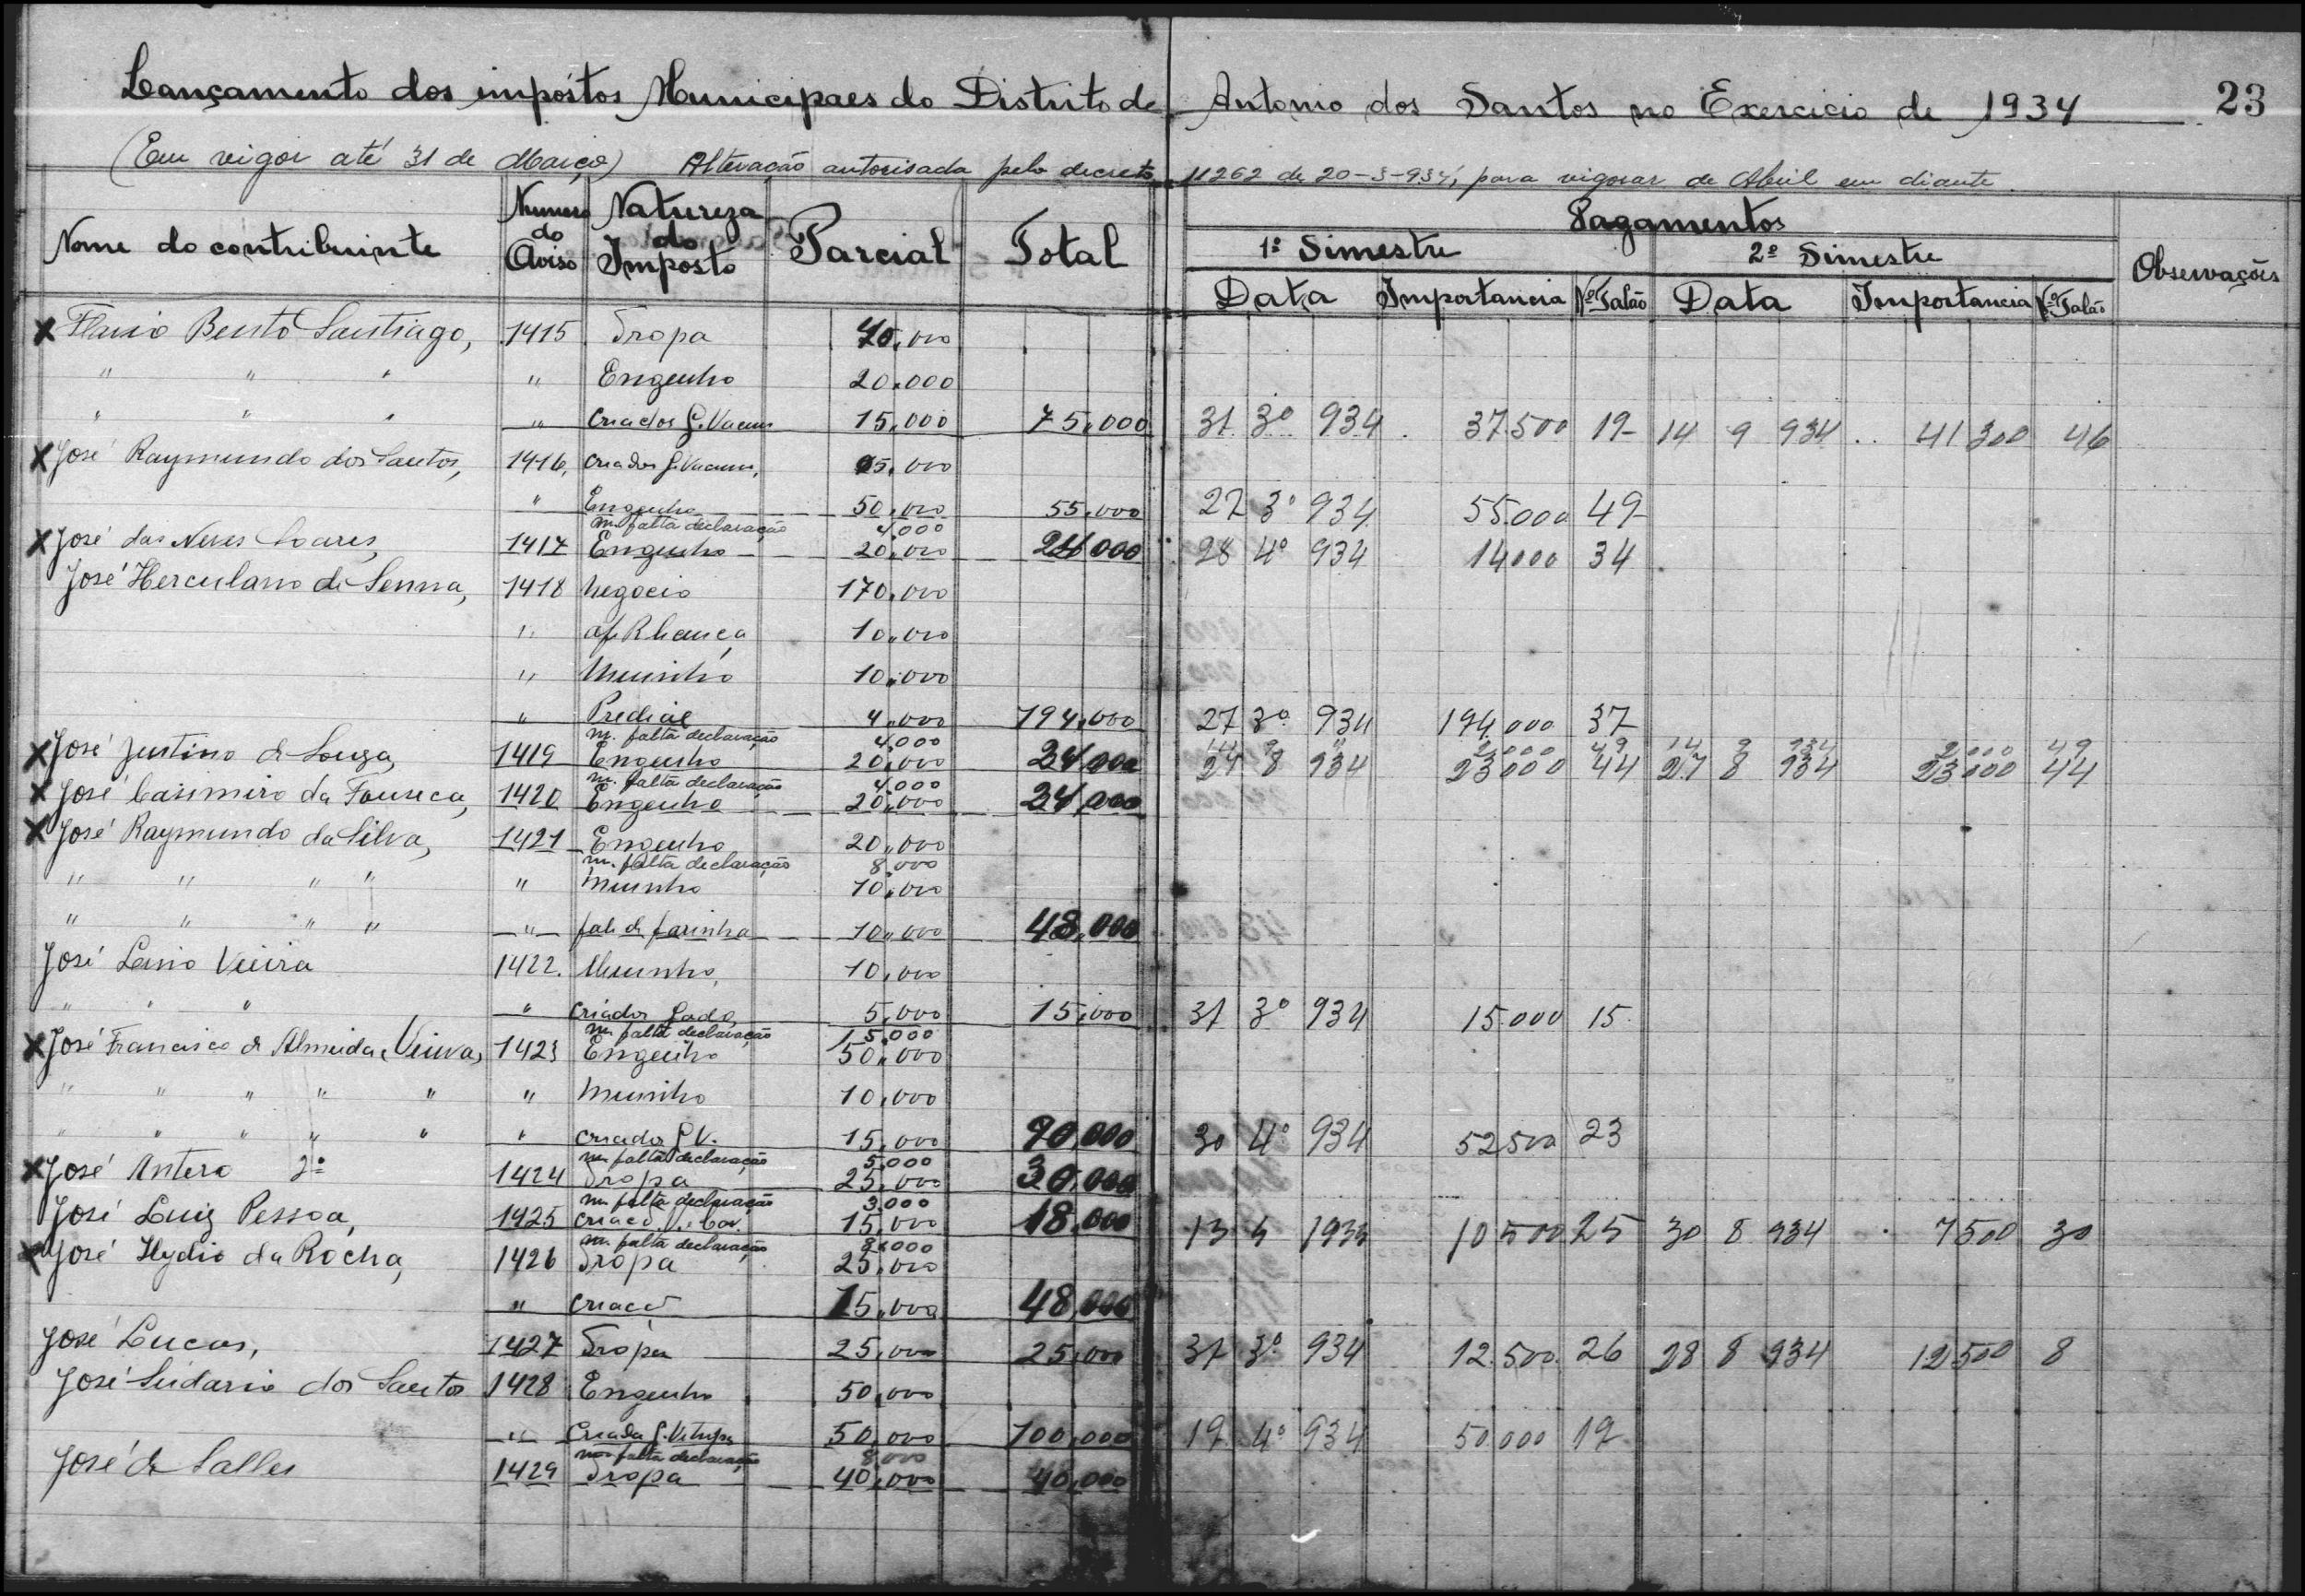 Lançamento dos impóstos Municipaes do Distrito de Antonio dos Santos no Exercicio de 1934 23
(Em vigor até 31 de Março) Alteração autorisada pelo decreto 11262 de 20-3-934, para vigorar de Abril em diante.
Nome do contribuinte Numero do Aviso Natureza do Imposto Parcial Total Pagamentos Observações
1º Simestre 2º Simestre
Data Importancia Nº Talão Data Importancia Nº Talão
X Flavio Bento Santiago, 1415 Tropa 40,000
" " " " Engenho 20.000
" " " " Criador G. Vacum 15,000 75,000 31 3º 934 37.500 19 14 9 934 41300 46
X José Raymundo dos Santos, 1416, Criador G. Vacum, 05,000
" Engenho 50,000 55,000 27 3º 934 55.000 49
m. falta declaração 4,000
X José das Neves Soares, 1417 Engenho 20,000 24000 28 4º 934 14000 34
José Herculano de Senna, 1418 Negocio 170,000
" 10,000
" Muinho 10,000
" Predial 4,000 194,000 27 3º 934 194.000 37
m. falta declaração 4,000 14 9 2000 49 14 9 934 2000 49
X José Justino de Souza, 1419 Engenho 20,000 24,000 27 8 934 23000 44 27 8 934 23000 44
m. falta declaração 4,000
X José Casimiro da Fonseca, 1420 Engenho 20,000 24,000
X José Raymundo da Silva, 1421 Engenho 20,000
m. falta declaração 8,000
" " " " " Muinho 10,000
" " " " " fab. de farinha 10,000 48,000
José Lino Vieira 1422. Muinho, 10,000
" " " " Criador Gado 5,000 15,000 31 3º 934 15.000 15
m. falta declaração 15,000
X José Francisco de Almeida, Viuva, 1423 Engenho 50,000
" " " " " " Muinho 10,000
" " " " " " Criador G V. 15,000 90,000 30 4º 934 52500 23
m. falta declaração 5,000
X José Antero 2º 1424 Tropa 25,000 30,000
m. falta declaração 3,000
José Luiz Pessoa, 1425 15,000 18,000 13 5 1934 10500 25 30 8 934 7500 30
m. falta declaração 8,000
X José Hydio da Rocha, 1426 Tropa 25,000
" Criacd 15,000 48,000
José Lucas, 1427 Tropa 25,000 25,000 31 3º 934 12.500 26 28 8 934 12500 8
José Sudario dos Santos 1428 Engenho 50,000
" 50,000 100,000 19 4º 934 50000 19
falta declaração 8,000
José de Salles 1429 Tropa 40,000 40,000